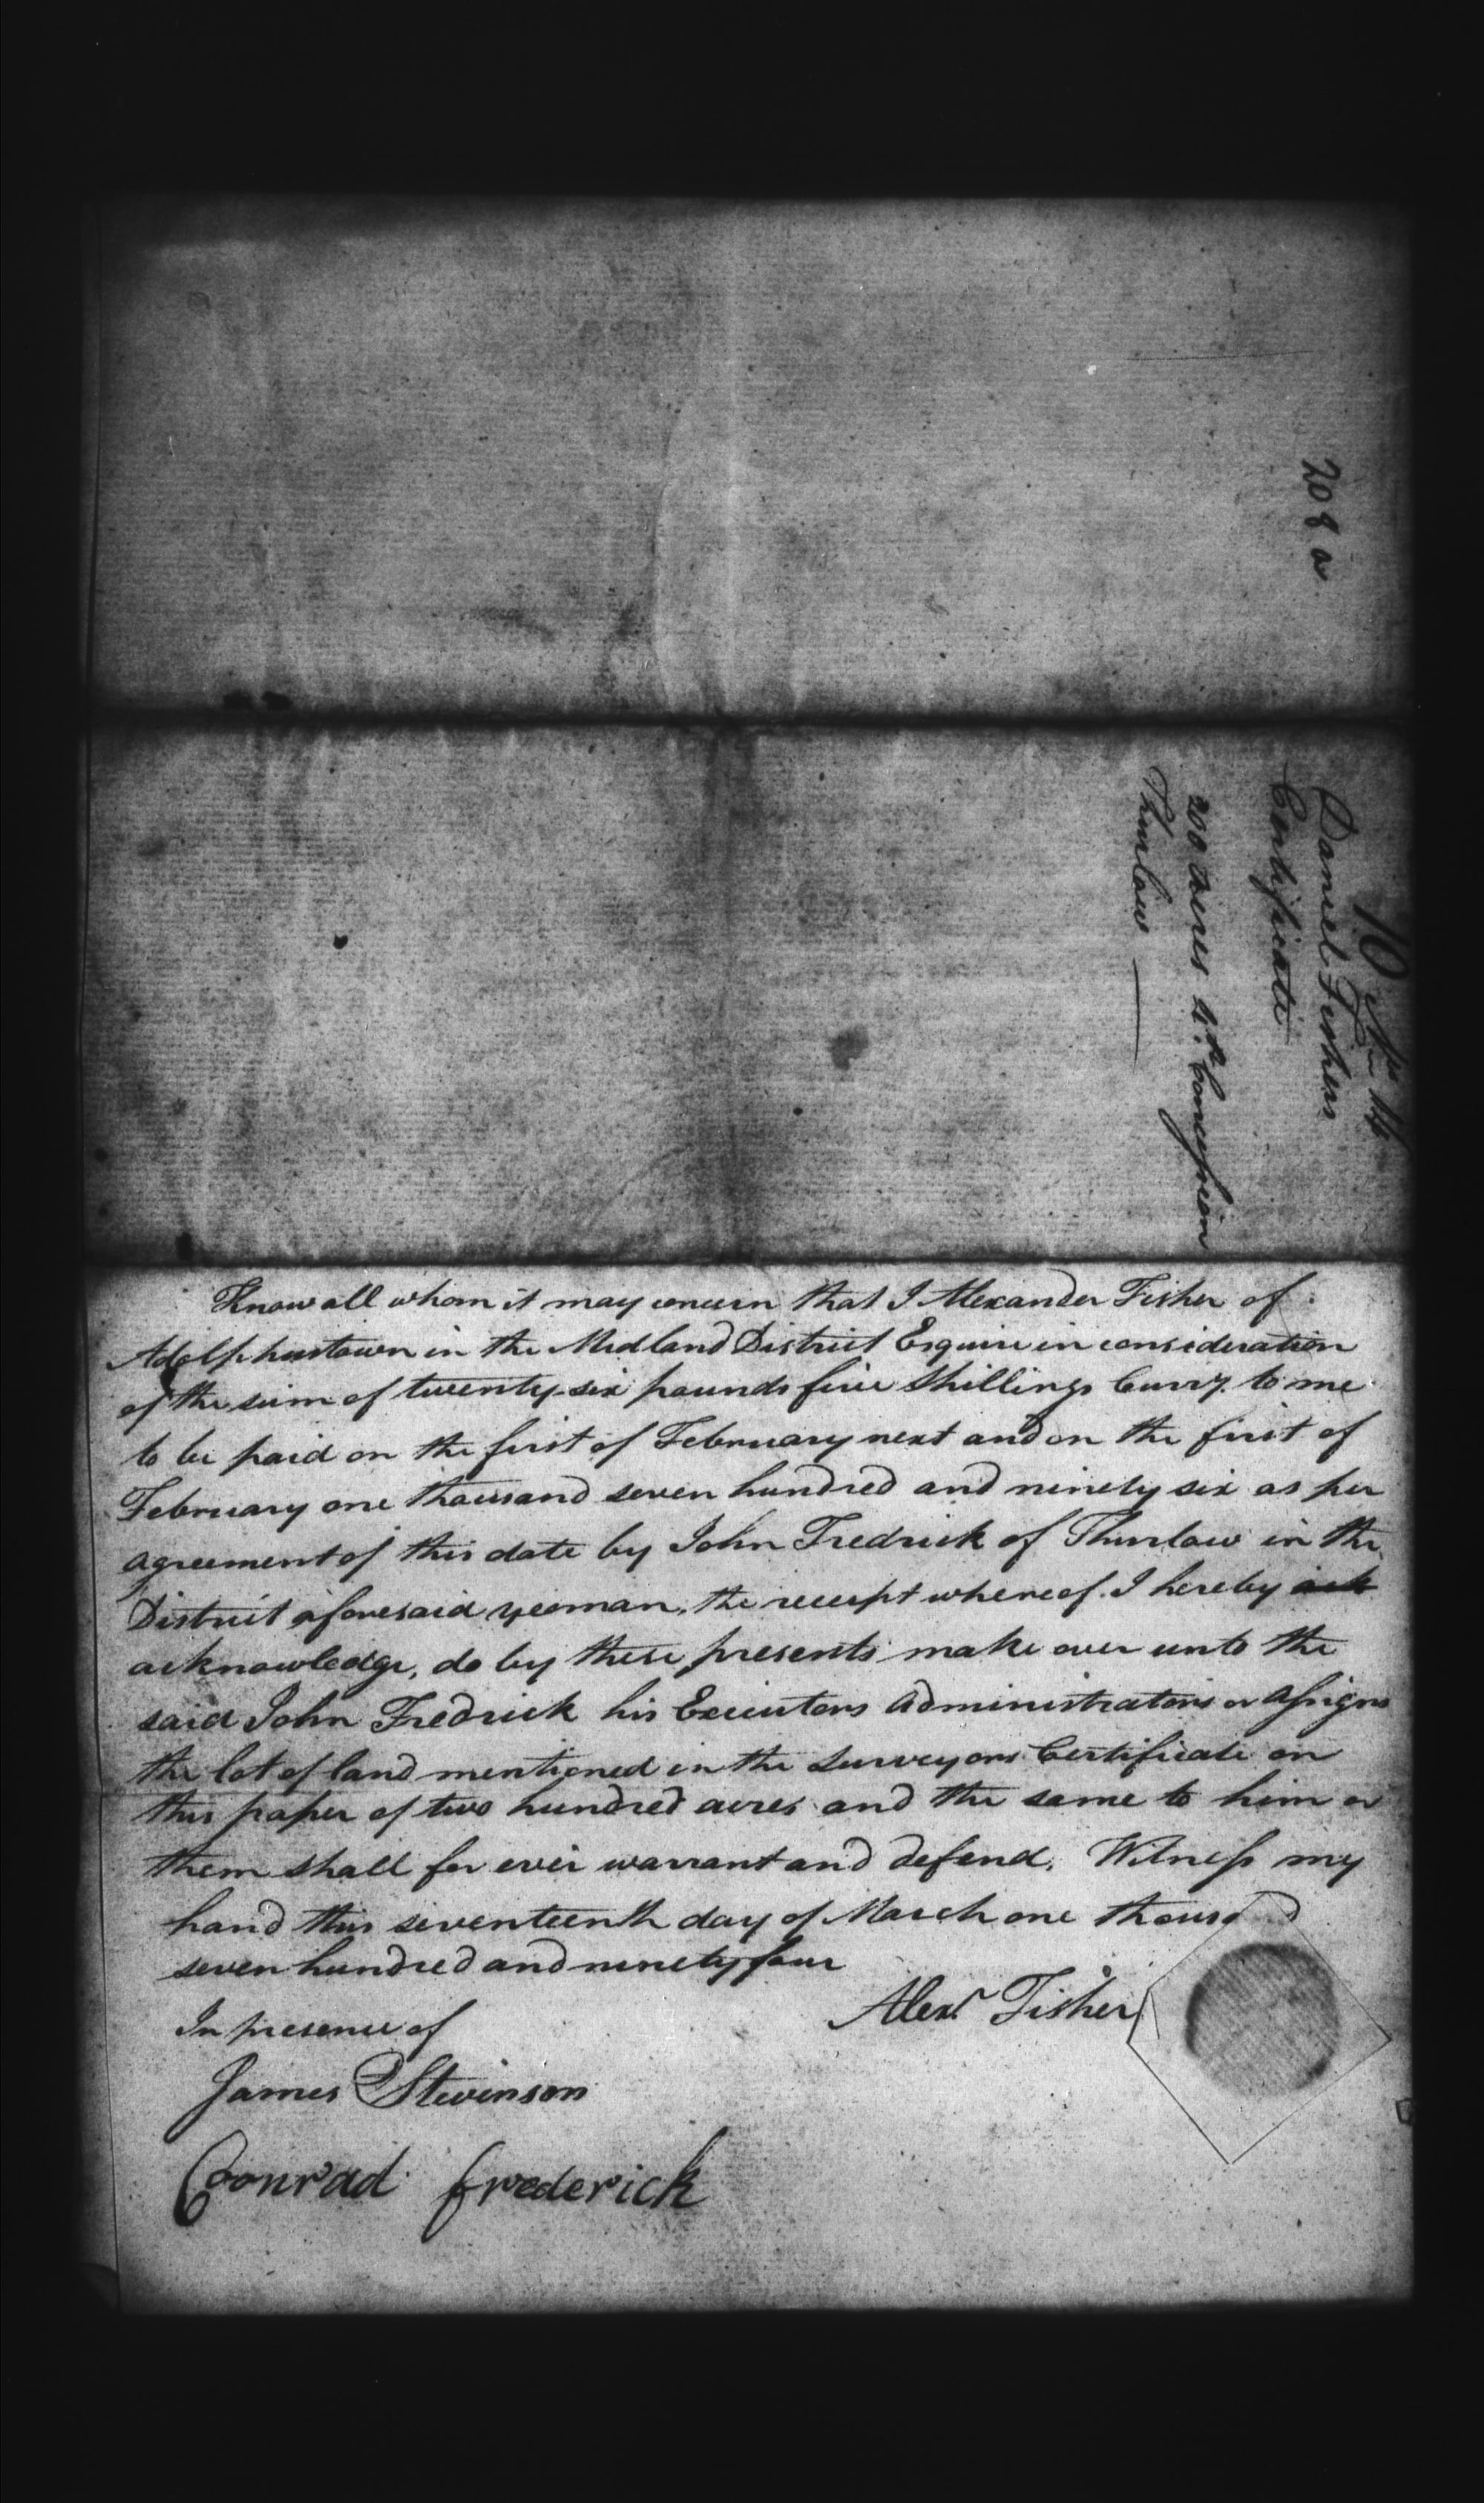 208 a
10 No 14
Daniel Fishers
Certificate
200 acres 4th Concession
Thurlow
Know all whom it may concern that I Alexander Fisher of
Adolphustown in the Midland District Esquire in consideration
of the sum of twenty-six pounds five Shillings Curry. to me
to be paid on the first of February next and on the first of
February one thousand seven hundred and ninety six as per
agreement of this date by John Fredrick of Thurlow in the
District aforesaid yeoman, the receipt whereof I hereby ack
acknowledge, do by these presents make over unto the
said John Fredrick his Executors Administrators or Assigns
the lot of land mentioned in the Surveyors Certificate on
this paper of two hundred acres and the same to him or
them shall for ever warrant and defend. Witness my
hand this seventeenth day of March one thousand
seven hundred and ninety four
Alexr Fisher
In presence of
James Stevinson
Conrad frederick